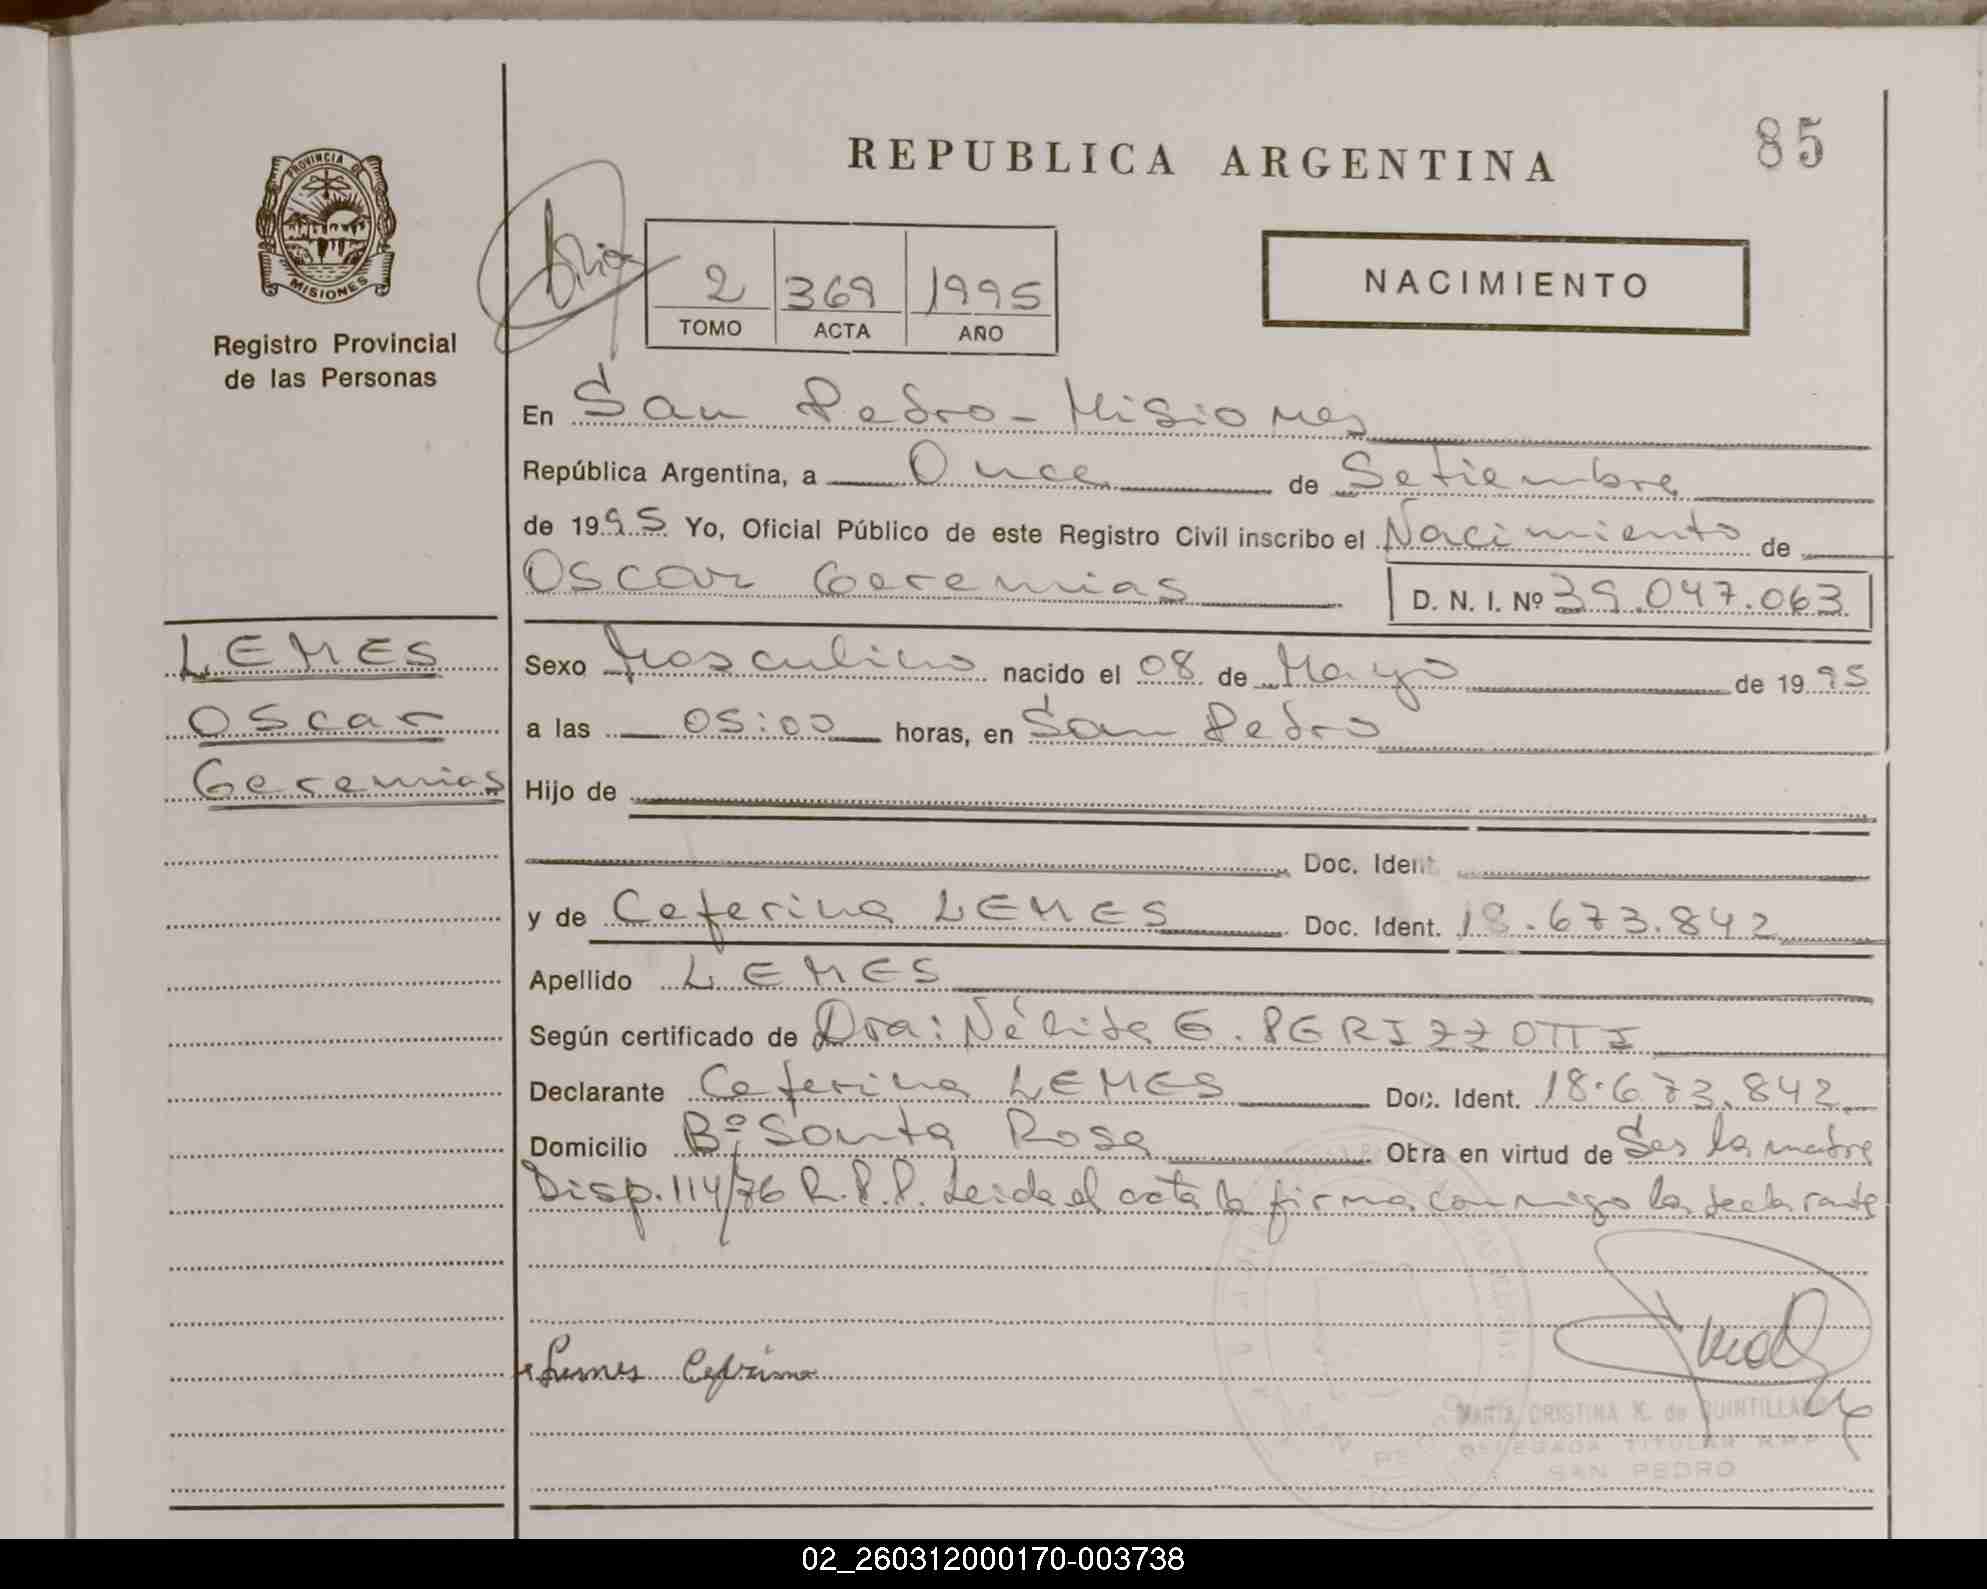 REPUBLICA ARGENTINA
85
PROVINCIA DE
MISIONES
Registro Provincial
de las Personas
2 369 1995
TOMO ACTA AÑO
NACIMIENTO
En San Pedro - Misiones
República Argentina, a Once de Setiembre
de 1995 Yo, Oficial Público de este Registro Civil inscribo el Nacimiento de
Oscar Geremias D. N. I. Nº 39.047.063
LEMES
Oscar
Geremias
Sexo Masculino nacido el 08 de Mayo de 1995
a las 05:00 horas, en San Pedro
Hijo de
Doc. Ident.
y de Ceferina LEMES Doc. Ident. 18.673.842
Apellido LEMES
Según certificado de Dra: Nélida G. PERIZZOTTI
Declarante Ceferina LEMES Doc. Ident. 18.673.842
Domicilio Bº Santa Rosa Obra en virtud de Ser la madre
Disp. 114/76 R.P.P. Leida el acta la firma conmigo la declarante
Lemes Ceferina
MARIA CRISTINA K. de QUINTILLAN
DELEGADA TITULAR R.P.P.
SAN PEDRO
02_260312000170-003738